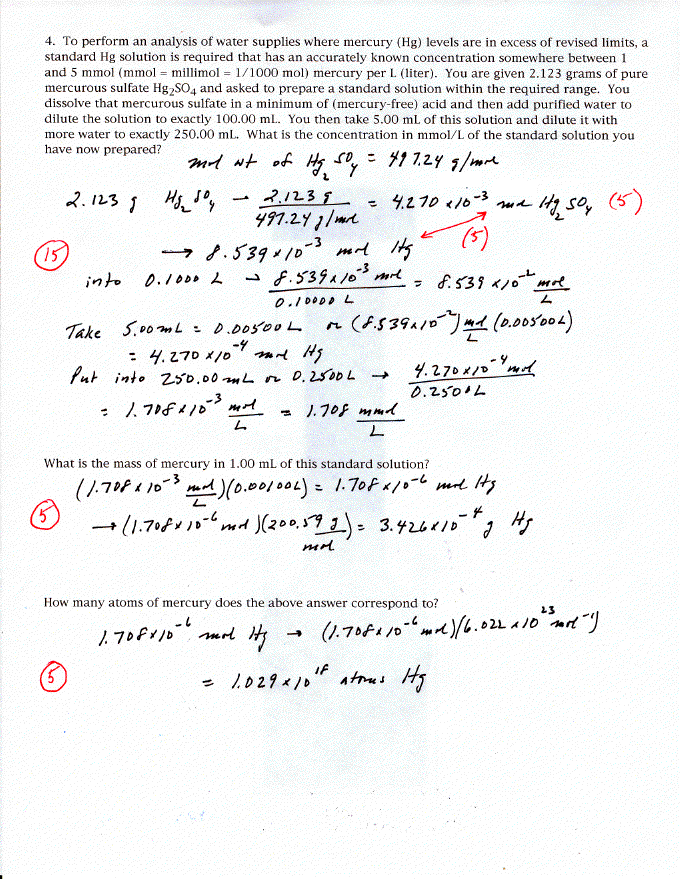 4. To perform an analysis of water supplies where mercury (Hg) levels are in excess of revised limits, a
standard Hg solution is required that has an accurately known concentration somewhere between 1
and 5 mmol (mmol = millimol = 1/1000 mol) mercury per L (liter). You are given 2.123 grams of pure
mercurous sulfate Hg₂SO₄ and asked to prepare a standard solution within the required range. You
dissolve that mercurous sulfate in a minimum of (mercury-free) acid and then add purified water to
dilute the solution to exactly 100.00 mL. You then take 5.00 mL of this solution and dilute it with
more water to exactly 250.00 mL. What is the concentration in mmol/L of the standard solution you
have now prepared?
mol wt of Hg₂SO₄ = 497.24 g/mol
2.123 g Hg₂SO₄ → 2.123 g / 497.24 g/mol = 4.270 x 10⁻³ mol Hg₂SO₄ (5)
(15) → 8.539 x 10⁻³ mol Hg (5)
into 0.1000 L → 8.539 x 10⁻³ mol / 0.10000 L = 8.539 x 10⁻² mol/L
Take 5.00 mL = 0.00500 L or (8.539 x 10⁻²) mol/L (0.00500 L)
= 4.270 x 10⁻⁴ mol Hg
Put into 250.00 mL or 0.2500 L → 4.270 x 10⁻⁴ mol / 0.2500 L
= 1.708 x 10⁻³ mol/L = 1.708 mmol/L
What is the mass of mercury in 1.00 mL of this standard solution?
(1.708 x 10⁻³ mol/L)(0.00100 L) = 1.708 x 10⁻⁶ mol Hg
(5) → (1.708 x 10⁻⁶ mol)(200.59 g/mol) = 3.426 x 10⁻⁴ g Hg
How many atoms of mercury does the above answer correspond to?
1.708 x 10⁻⁶ mol Hg → (1.708 x 10⁻⁶ mol)(6.022 x 10²³ mol⁻¹)
(5) = 1.029 x 10¹⁸ atoms Hg